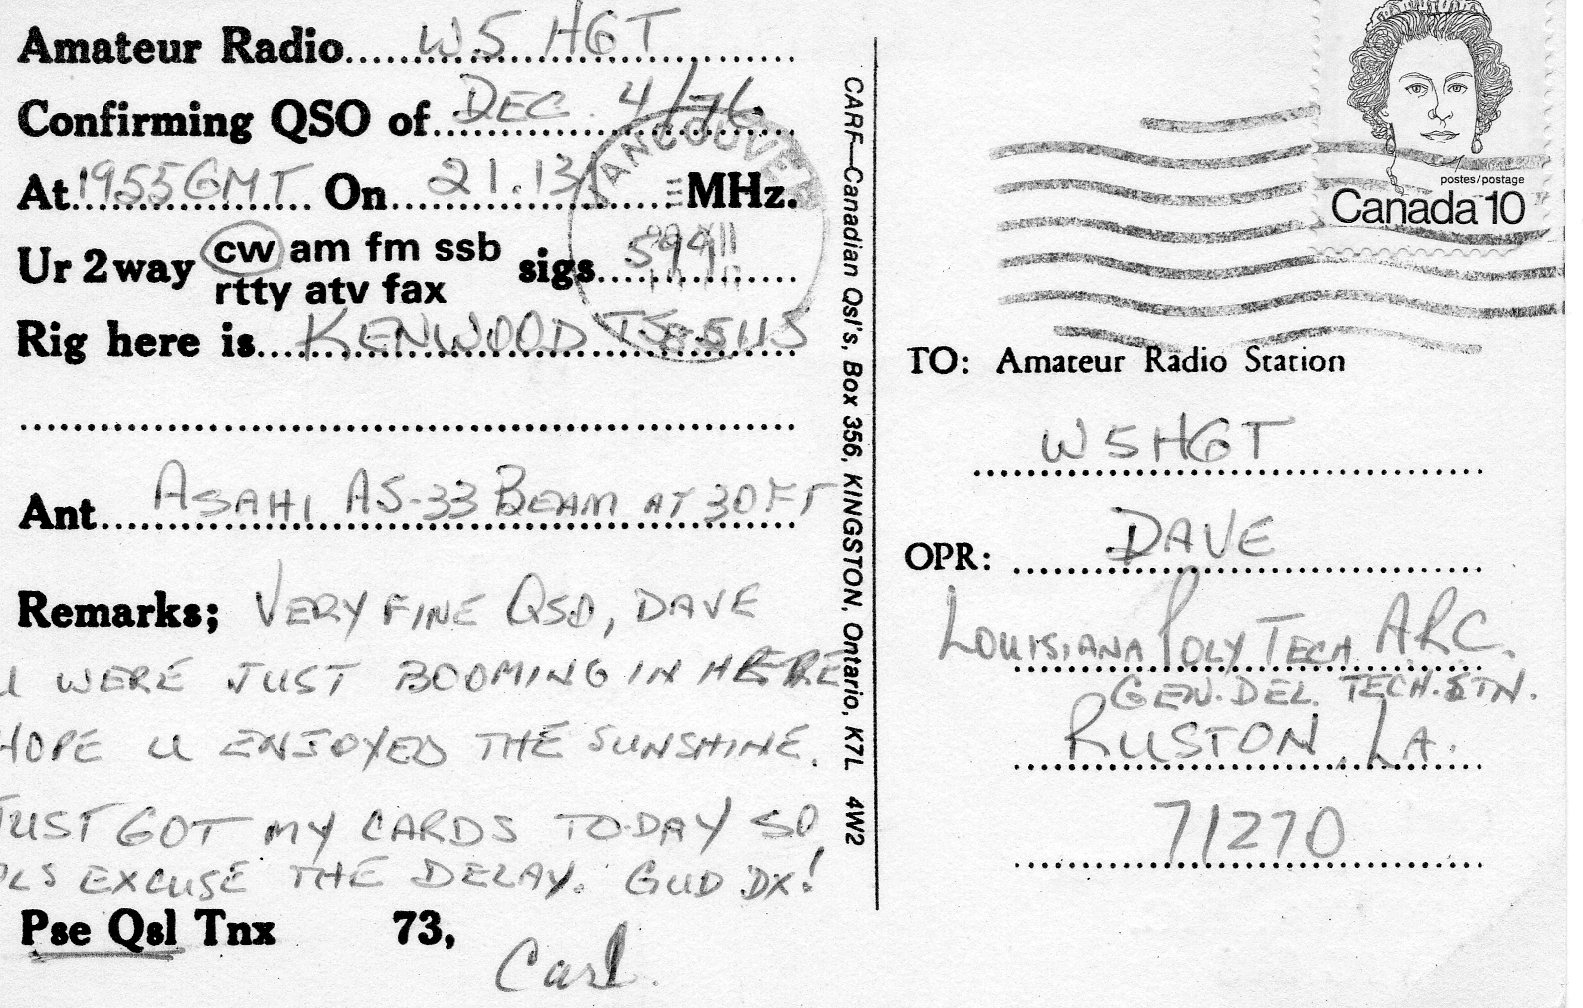 Amateur Radio W5 HGT
Confirming QSO of DEC 4/76
At 1955 GMT On 21.131 MHz.
Ur 2 way cw am fm ssb sigs 599
rtty atv fax
Rig here is KENWOOD TS-511S
Ant ASAHI AS-33 BEAM AT 30 FT
Remarks; VERY FINE QSO, DAVE
U WERE JUST BOOMING IN HERE
HOPE U ENJOYED THE SUNSHINE.
JUST GOT MY CARDS TO-DAY SO
PLS EXCUSE THE DELAY. GUD DX!
Pse Qsl Tnx 73,
Carl.
VANCOUVER
CARF—Canadian Qsl's, Box 356, KINGSTON, Ontario, K7L 4W2
postes/postage
Canada 10
TO: Amateur Radio Station
W5HGT
OPR: DAVE
LOUISIANA POLY TECH ARC.
GEN. DEL. TECH. STN.
RUSTON, LA.
71270